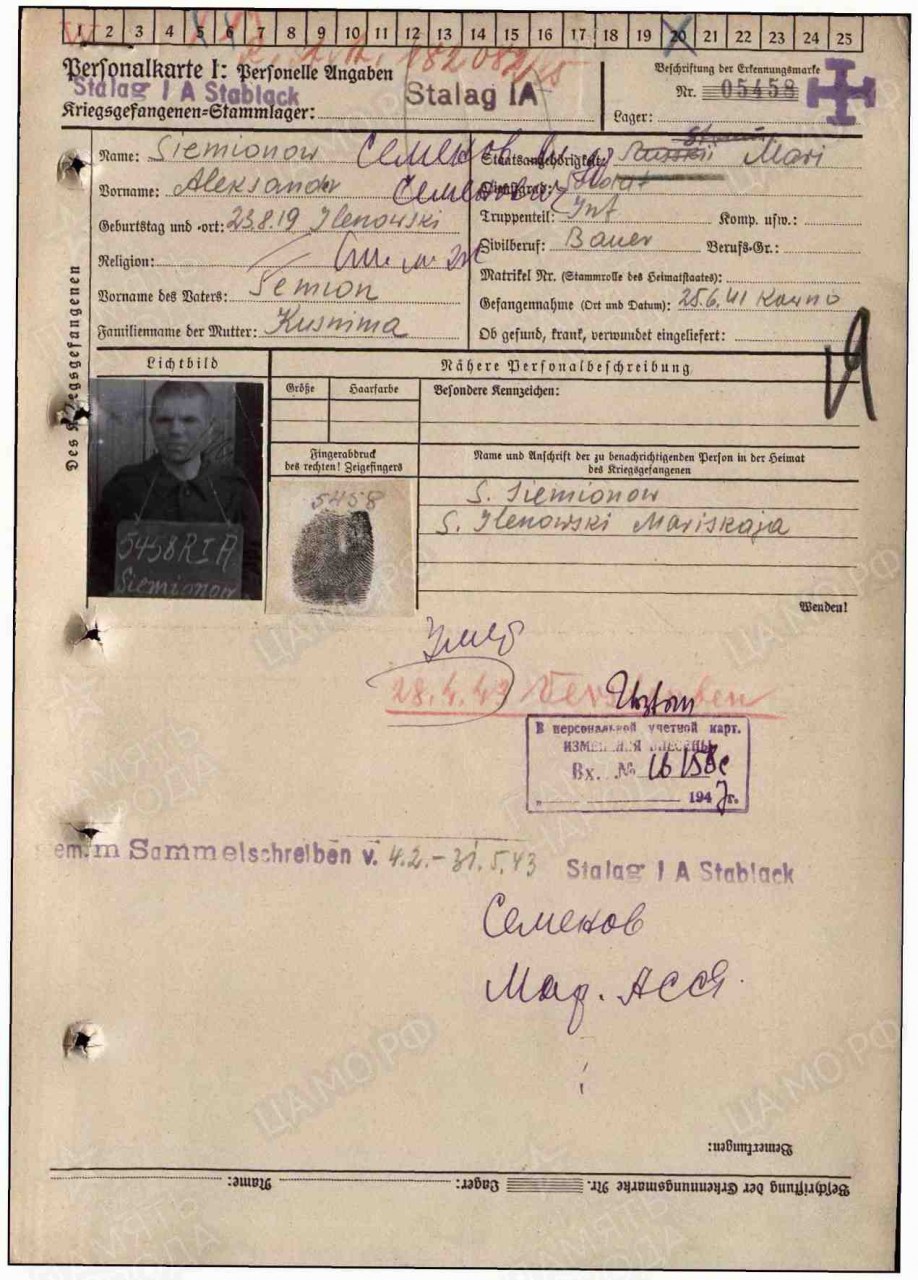 1 2 3 4 5 6 7 8 9 10 11 12 13 14 15 16 17 18 19 20 21 22 23 24 25
Personalkarte I: Personelle Angaben
Stalag I A Stablack
Kriegsgefangenen=Stammlager:
Stalag IA
Beschriftung der Erkennungsmarke
Nr. 05458
Lager:
Des Kriegsgefangenen
Name: Siemionow Семенов
Vorname: Aleksandr Семенович
Geburtstag und -ort: 23.8.19 Ilenowski
Religion:
Vorname des Vaters: Semion
Familienname der Mutter: Kusnima
Staatsangehörigkeit: Russkii Mari
Dienstgrad: Soldat
Truppenteil: Inf Komp. usw.:
Zivilberuf: Bauer Berufs-Gr.:
Matrikel Nr. (Stammrolle des Heimatstaates):
Gefangennahme (Ort und Datum): 25.6.41 Kowno
Ob gesund, krank, verwundet eingeliefert:
Lichtbild
Nähere Personalbeschreibung
Größe Haarfarbe Besondere Kennzeichen:
Fingerabdruck
des rechten! Zeigefingers
5458
Name und Anschrift der zu benachrichtigenden Person in der Heimat
des Kriegsgefangenen
S. Siemionow
S. Ilenowski Mariskaja
5458 R I A
Siemionow
Wenden!
28.4.43 Verstorben
В персональной учетной карт.
ИЗМЕНЕНИЯ ВНЕСЕНЫ
Вх. №
194 г.
m Sammelschreiben v. 4.2.-31.5.43
Stalag I A Stablack
Семенов
Мар. АССЯ.
Bemerkungen:
Beschriftung der Erkennungsmarke Nr. Lager: Name:
ЦАМО.РФ
ПАМЯТЬ НАРОДА